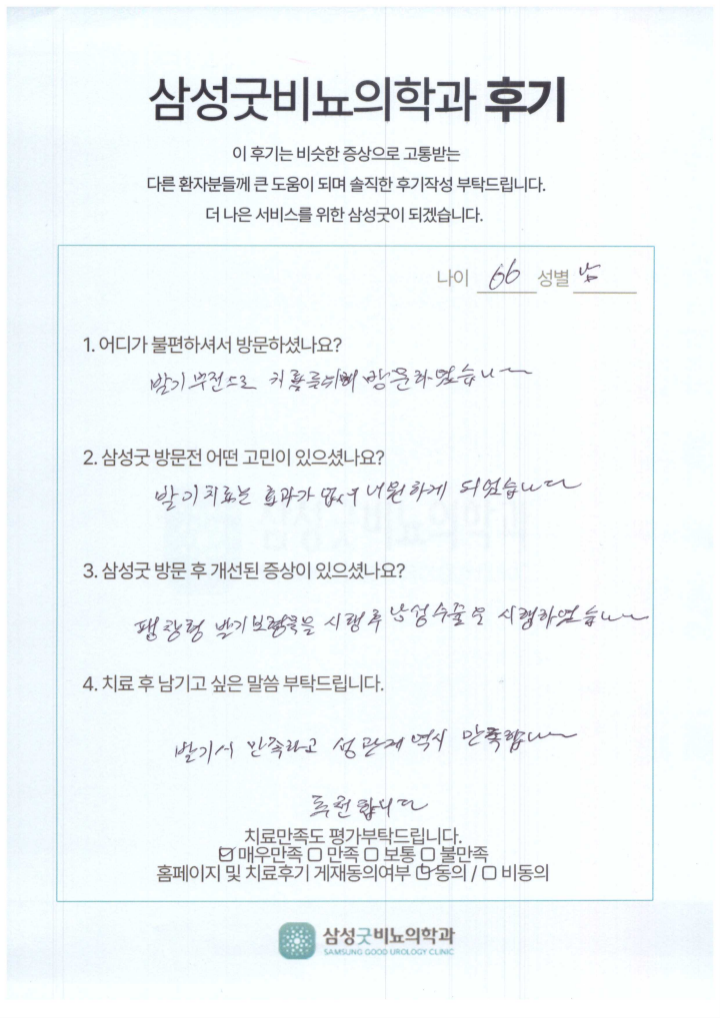 삼성굿비뇨의학과 후기
이 후기는 비슷한 증상으로 고통받는
다른 환자분들께 큰 도움이 되며 솔직한 후기작성 부탁드립니다.
더 나은 서비스를 위한 삼성굿이 되겠습니다.
나이 66 성별 남
1. 어디가 불편하셔서 방문하셨나요?
발기부전으로 치료를위해 방문하였습니다
2. 삼성굿 방문전 어떤 고민이 있으셨나요?
발기치료는 효과가 없어 내원하게 되었습니다
3. 삼성굿 방문 후 개선된 증상이 있으셨나요?
팽창형 발기보형물을 시행후 남성수술을 시행하였습니다
4. 치료 후 남기고 싶은 말씀 부탁드립니다.
발기시 만족하고 성관계 역시 만족합니다
추천합니다
치료만족도 평가부탁드립니다.
매우만족 만족 보통 불만족
홈페이지 및 치료후기 게재동의여부 동의 / 비동의
삼성굿비뇨의학과
SAMSUNG GOOD UROLOGY CLINIC